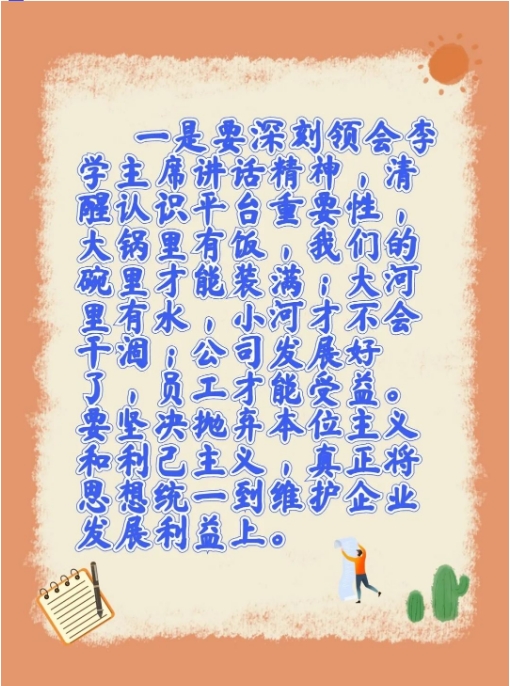 一是要深刻领会李
学主席讲话精神，清
醒认识平台重要性，
大锅里有饭，我们的
碗里才能装满；大河
里有水，小河才不会
干涸；公司发展好
了，员工才能受益。
要坚决抛弃本位主义
和利己主义，真正将
思想统一到维护企业
发展利益上。